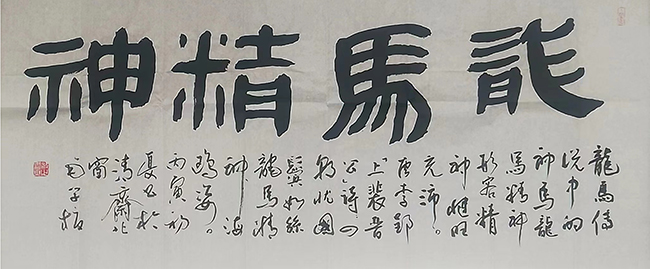 龍馬精神
龍馬傳
说中的
神馬龍
馬精神
形容精
神健旺
充沛。
唐李郢
上裴晋
公詩四
朝忧國
鬢如絲
龍馬精
神海
鶴姿。
丙寅初
夏书於
清齋北
窗